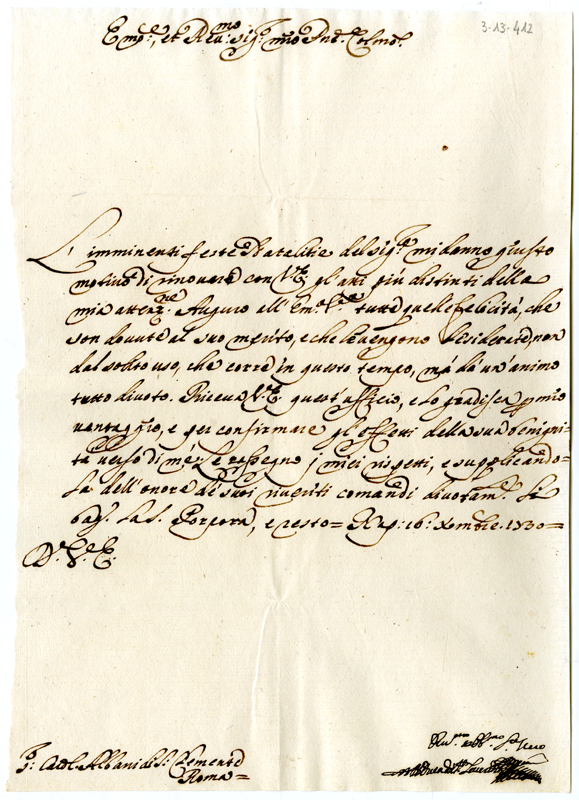 3-13-412
Em.º, et Reu.mo Sig.r mio Pne. Colmo.
L'imminenti feste Natalitie del Sig.re mi danno giusto
motiuo di rinouare con V.E. gli atti più distinti della
mia atten.ne Auguro all' Em.a V.ra tutte quelle felicità, che
son douute al suo merito, e che le uengono desiderate, non
dal solito uso, che corre in questo tempo, mà da un'animo
tutto diuoto. Riceua V.E. quest'ufficio, e lo gradisca p mio
uantaggio, e per confirmare gl'effetti della sua benigni=
tà uerso di me; Le rassegno j miei rispetti, e supplicando=
la dell'onore de' suoi riueriti comandi diuotam.te Le
bacio la S. Porpora, e resto= Nap: 16: Xembre 1730=
D. V. E.
S: Card. Albani di S: Clemente
Roma=